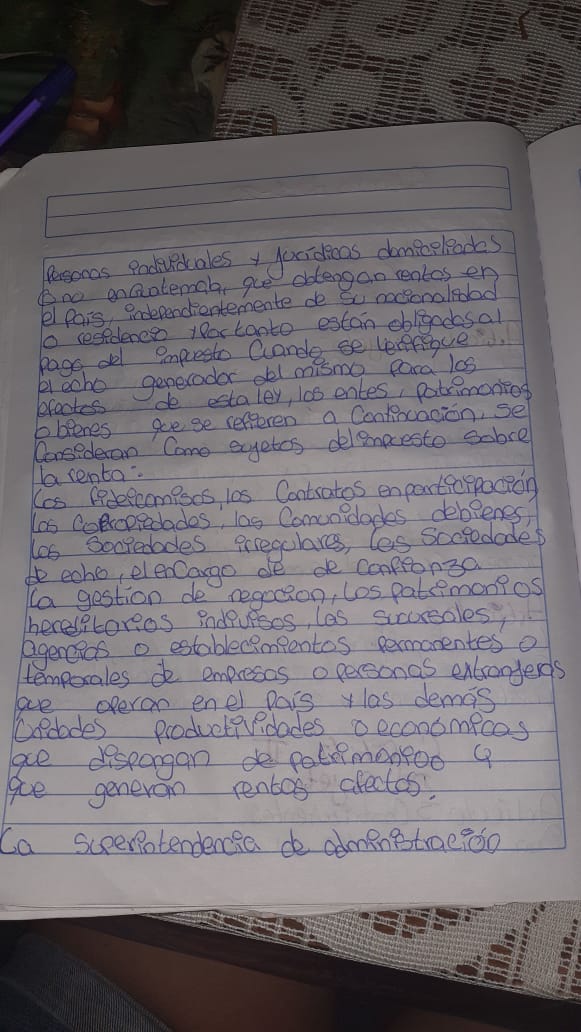 Personas individuales y jurídicas domiciliadas
o no en Guatemala, que obtengan rentas en
el País, independientemente de su nacionalidad
o residencia y por tanto están obligadas al
pago del impuesto Cuando se verifique
el echo generador del mismo Para los
efectos de esta ley, los entes, patrimonios
o bienes que se refieren a Continuación, se
Consideran Como sujetos del impuesto sobre
la renta:
Los fideicomisos, los Contratos en participación
las Copropiedades, las Comunidades de bienes,
las Sociedades irregulares, las Sociedades
de echo, el encargo de de Confianza
la gestion de negocion, Los patrimonios
hereditarios indivisos, las sucursales,
agencias o establecimientos permanentes o
temporales de empresas o personas extranjeras
que operan en el País y las demás
Unidades productividades o económicas
que dispongan de patrimonioo y
que generan rentas afectos.
La Superintendencia de administración